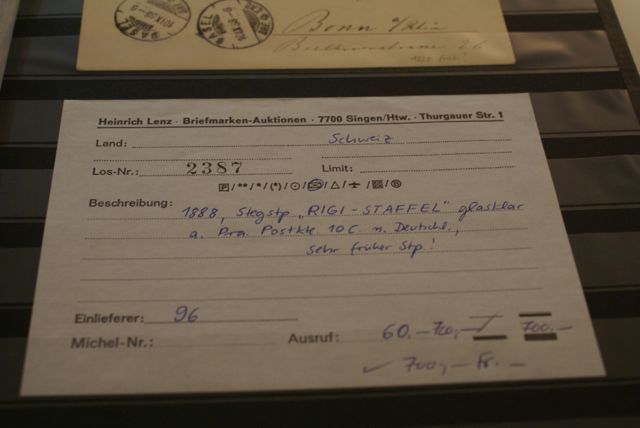 BASEL BASEL
Bonn a/Rhein
Heinrich Lenz · Briefmarken-Auktionen · 7700 Singen/Htw. · Thurgauer Str. 1
Land: Schweiz
Los-Nr.: 2387 Limit:
Beschreibung:
1888, Stegstp „RIGI-STAFFEL" glasklar
a. Pra. Postkte 10 C n. Deutschl.,
sehr früher Stp!
Einlieferer: 96
Michel-Nr.: Ausruf: 60.- 700,- 700.-
700,- Fr. -